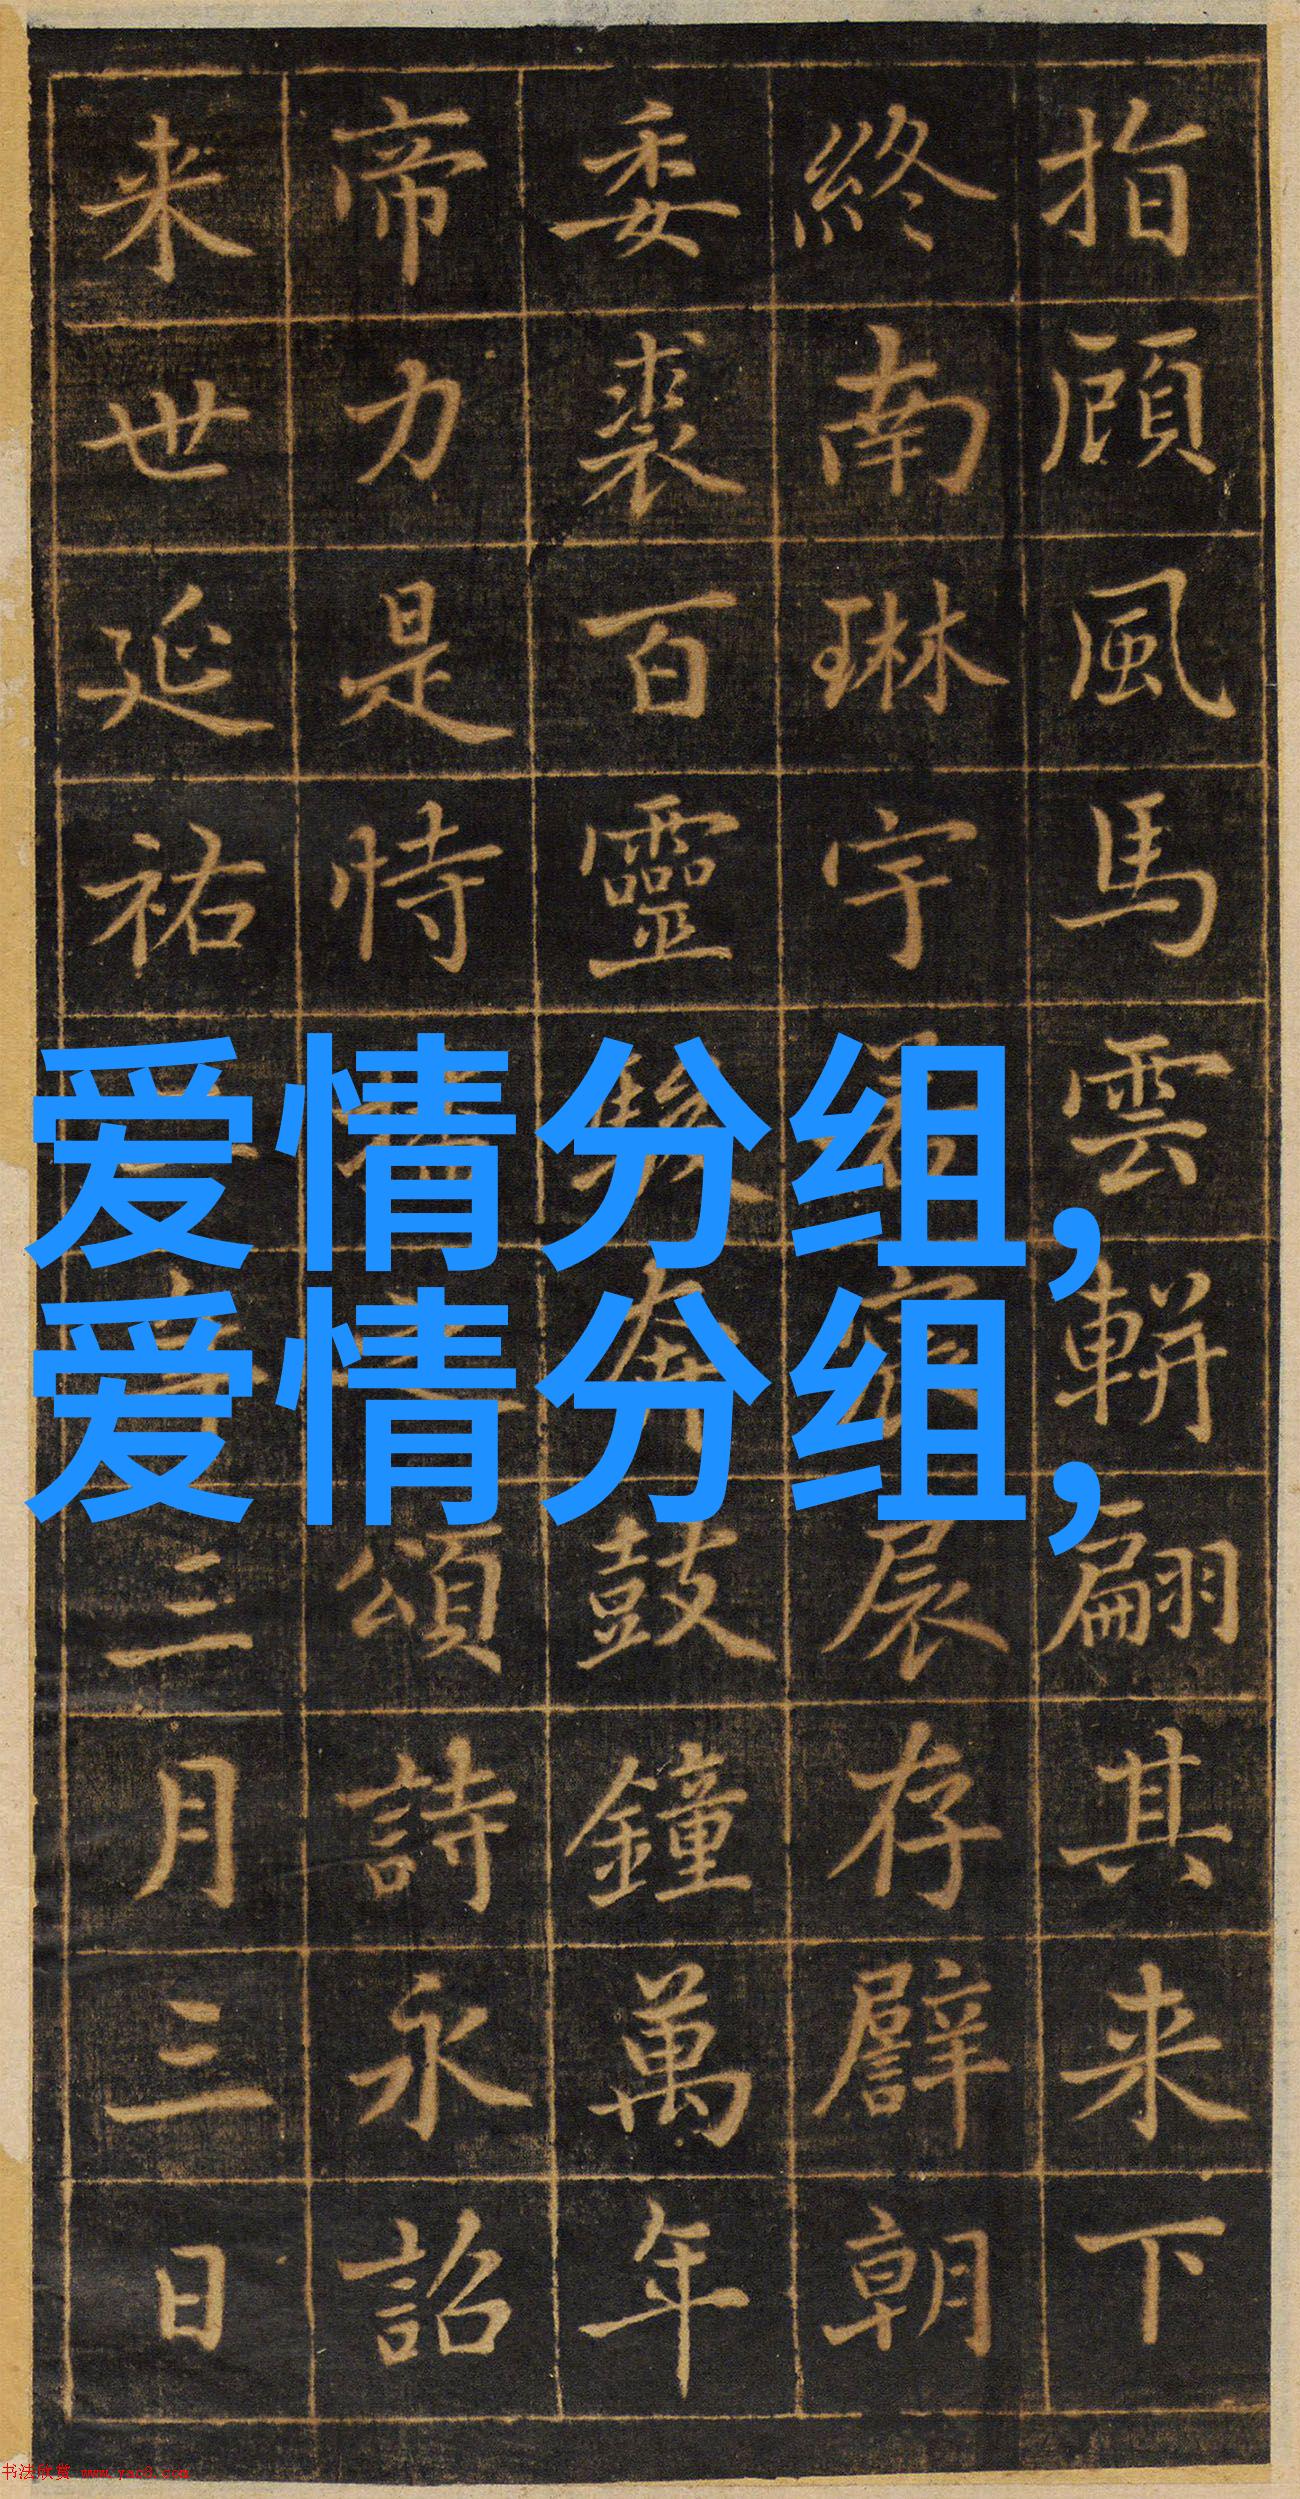 爱情分组,
爱情分组,
指頋風馬雲軿翩其来下
終南琳宇展存譬朝
委裘百靈駿奔鼓鐘萬年
帝力是恃頌詩永詔
来世延祐三月三日
书法欣赏 www.yac8.com